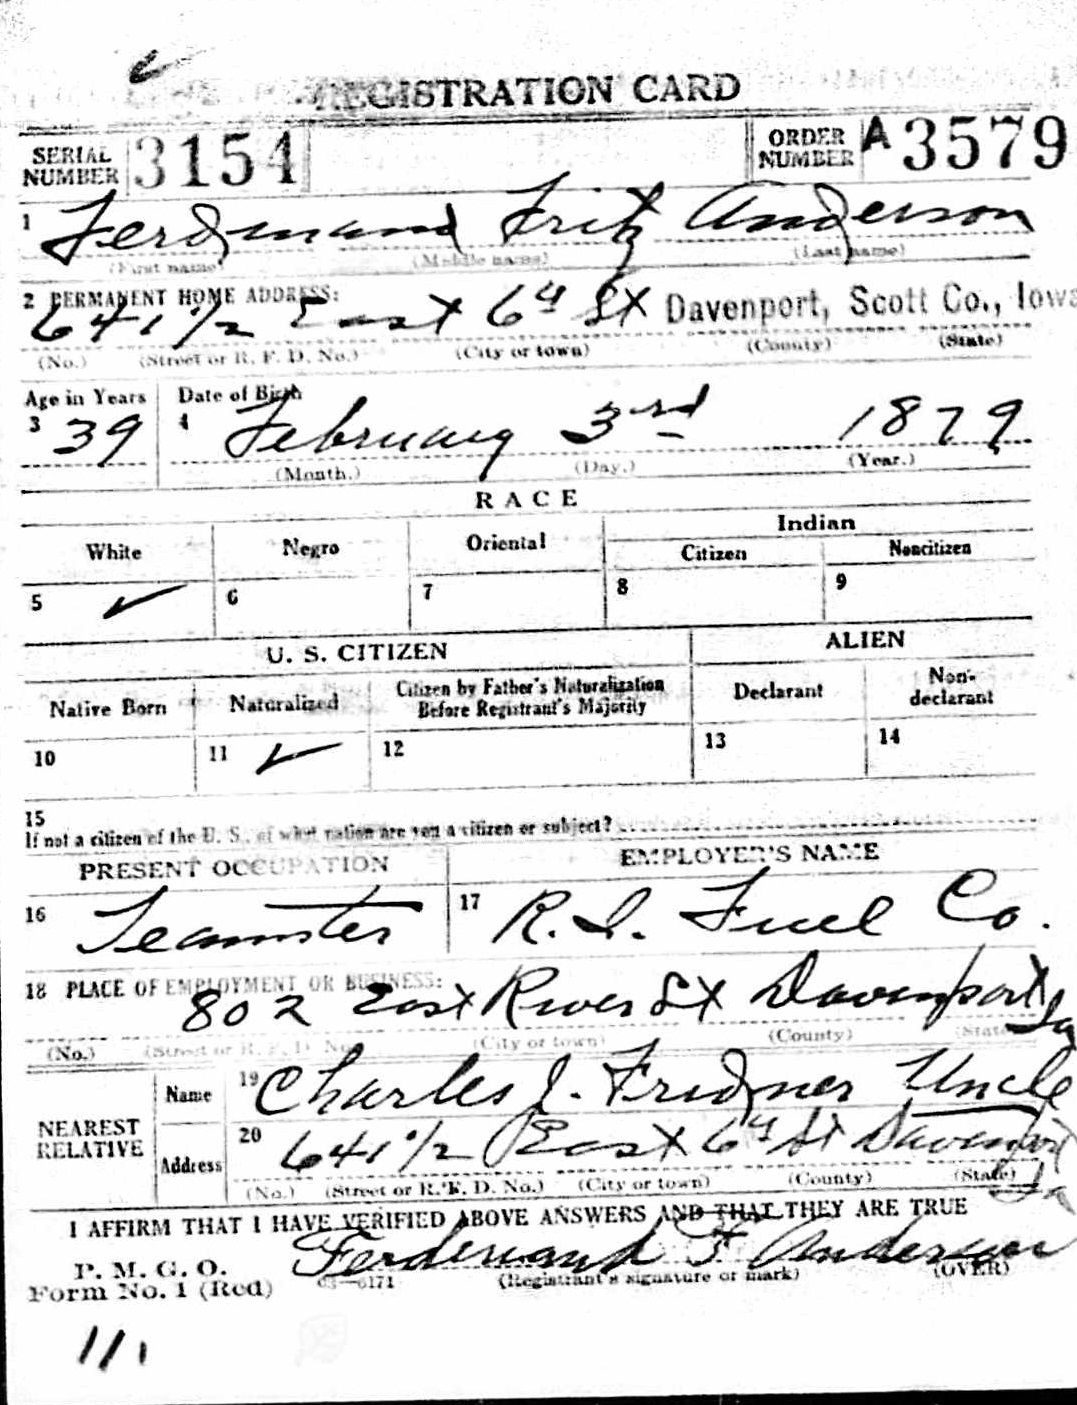 REGISTRATION CARD
SERIAL NUMBER 3154 ORDER NUMBER A 3579
1 Ferdinand Fritz Anderson
(First name) (Middle name) (Last name)
2 PERMANENT HOME ADDRESS:
641 1/2 East 6th St Davenport, Scott Co., Iowa
(No.) (Street or R. F. D. No.) (City or town) (County) (State)
Age in Years Date of Birth
3 39 4 February 3rd 1879
(Month.) (Day.) (Year.)
RACE
White Negro Oriental Indian
Citizen Noncitizen
5 ✓ 6 7 8 9
U. S. CITIZEN ALIEN
Native Born Naturalized Citizen by Father's Naturalization Before Registrant's Majority Declarant Non-declarant
10 11 ✓ 12 13 14
15
If not a citizen of the U. S., of what nation are you a citizen or subject?
PRESENT OCCUPATION EMPLOYER'S NAME
16 Teamster 17 R. I. Fuel Co.
18 PLACE OF EMPLOYMENT OR BUSINESS:
802 East River St Davenport Ia
(No.) (Street or R. F. D. No.) (City or town) (County) (State)
NEAREST RELATIVE Name 19 Charles J. Uncle
Address 20 641 1/2 East 6th St Davenport Ia
(No.) (Street or R. F. D. No.) (City or town) (County) (State)
I AFFIRM THAT I HAVE VERIFIED ABOVE ANSWERS AND THAT THEY ARE TRUE
P. M. G. O.
Form No. 1 (Red) 03—6171 Ferdenand F Anderson
(Registrant's signature or mark) (OVER)
111